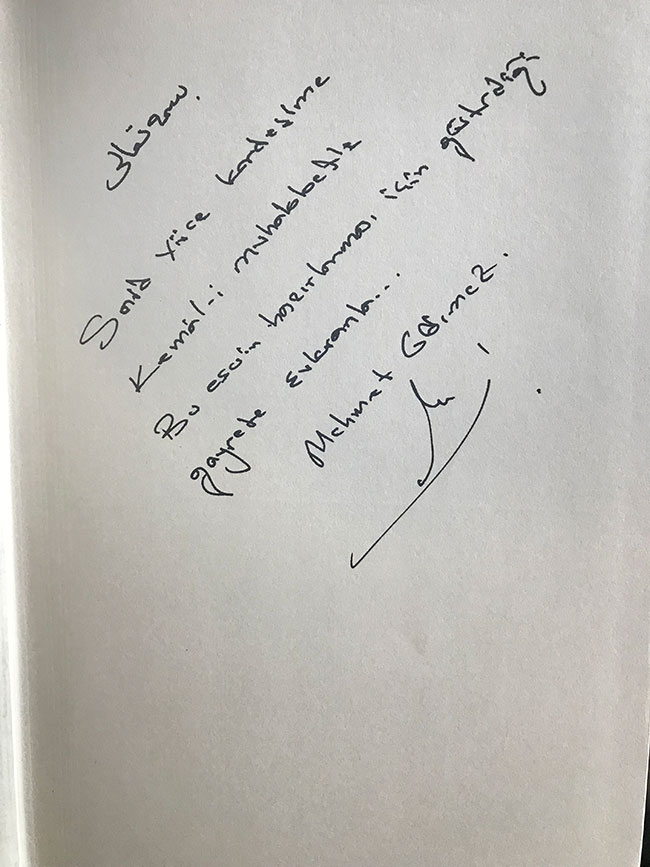 Said Yüce kardeşime
Kemâl-i muhabbetle
Bu eserin hazırlanması için gösterdiği
gayrete şükranla...
Mehmet Görmez.